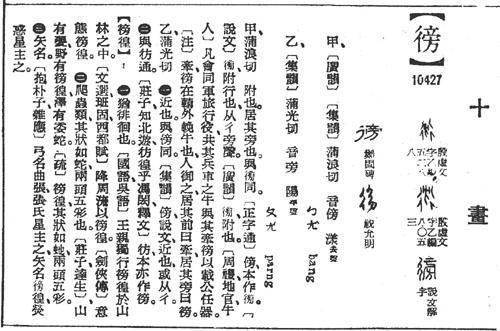 十
畫
【徬】
10427
殷虛文
字乙編
八五八
殷虛文
字乙編
八〇五
三
說文解
字
鄭固碑
祝允明
甲 〔廣韻〕〔集韻〕蒲浪切 音傍 漾去聲
ㄅㄤ bang
乙 〔集韻〕蒲光切 音旁 陽平聲
ㄆㄤ parng
甲蒲浪切 ㊀附也居其旁也與傍同〔正字通〕徬本作
說文〕附行也从彳旁聲〔廣韻〕附也〔周禮地官牛
人〕凡會同軍旅行役共其兵車之牛與其牽徬以載公任器
〔注〕牽徬在轅外輓牛也人御之居其前曰牽居其旁曰徬
乙蒲光切 ㊀近也與傍同〔集韻〕傍說文近也或从彳
㊁與彷通〔莊子知北遊彷徨乎馮閎釋文〕彷本亦作徬
【徬徨】㊀猶徘徊也〔國語吳語〕王親獨行徬徨於山
林之中〔文選班固西都賦〕降周流以徬徨〔劍俠傳〕意
態徬徨 ㊁爬蟲類其狀如蛇兩頭五彩也〔莊子達生〕山
有夔野有徬徨澤有委蛇〔疏〕徬徨其狀如蛇兩頭五彩
㊂矢名〔抱朴子雜應〕弓名曲張張氏星主之矢名徬徨熒
惑星主之